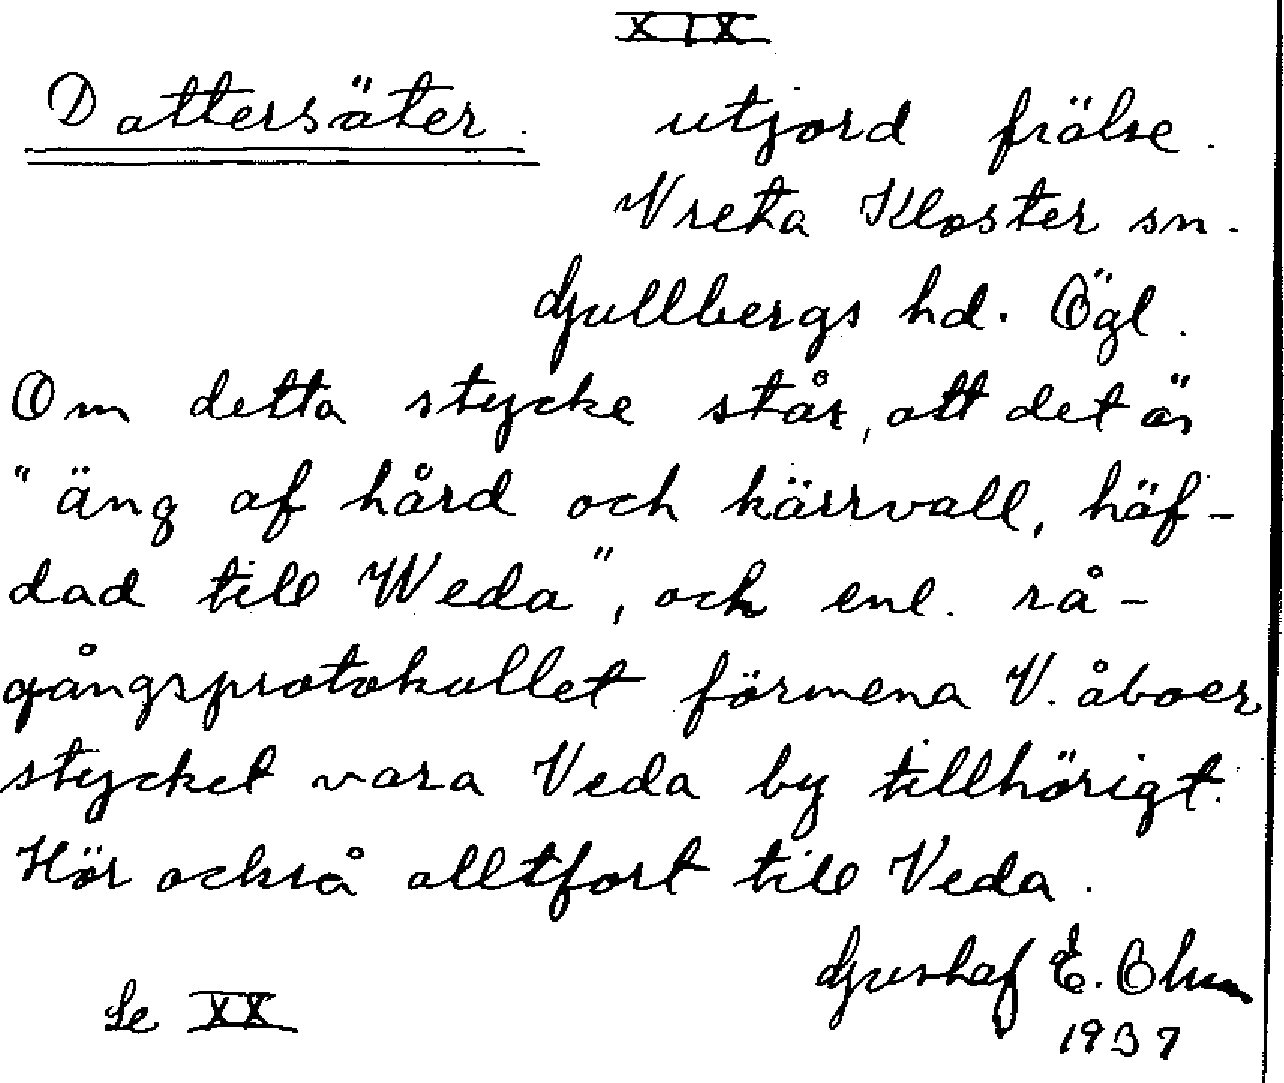 XIX
Dattersäter. utjord frälse.
Vreta Kloster sn.
Gullbergs hd. Ögl.
Om detta stycke står, att det är
"äng af hård och kärrvall, häf-
dad till Weda", och enl. rå-
gångsprotokollet förmena V. åboer
stycket vara Veda by tillhörigt.
Hör också alltfort till Veda.
Gustaf E.
Se XX
1937